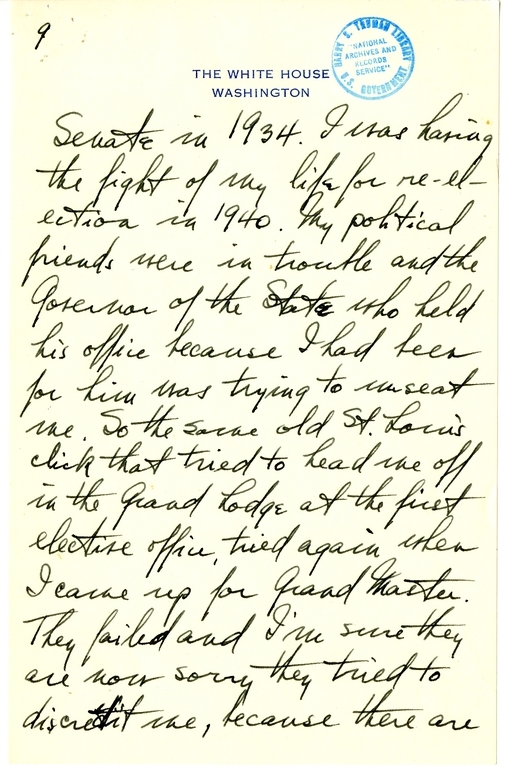 9
HARRY S. TRUMAN LIBRARY
"NATIONAL
ARCHIVES AND
RECORDS
SERVICE"
U.S. GOVERNMENT
THE WHITE HOUSE
WASHINGTON
Senate in 1934. I was having
the fight of my life for re-el-
ection in 1940. My political
friends were in trouble and the
Governor of the State who held
his office because I had been
for him was trying to unseat
me. So the same old St. Louis
click that tried to head me off
in the Grand Lodge at the first
elective office, tried again when
I came up for Grand Master.
They failed and I'm sure they
are now sorry they tried to
discredit me, because there are